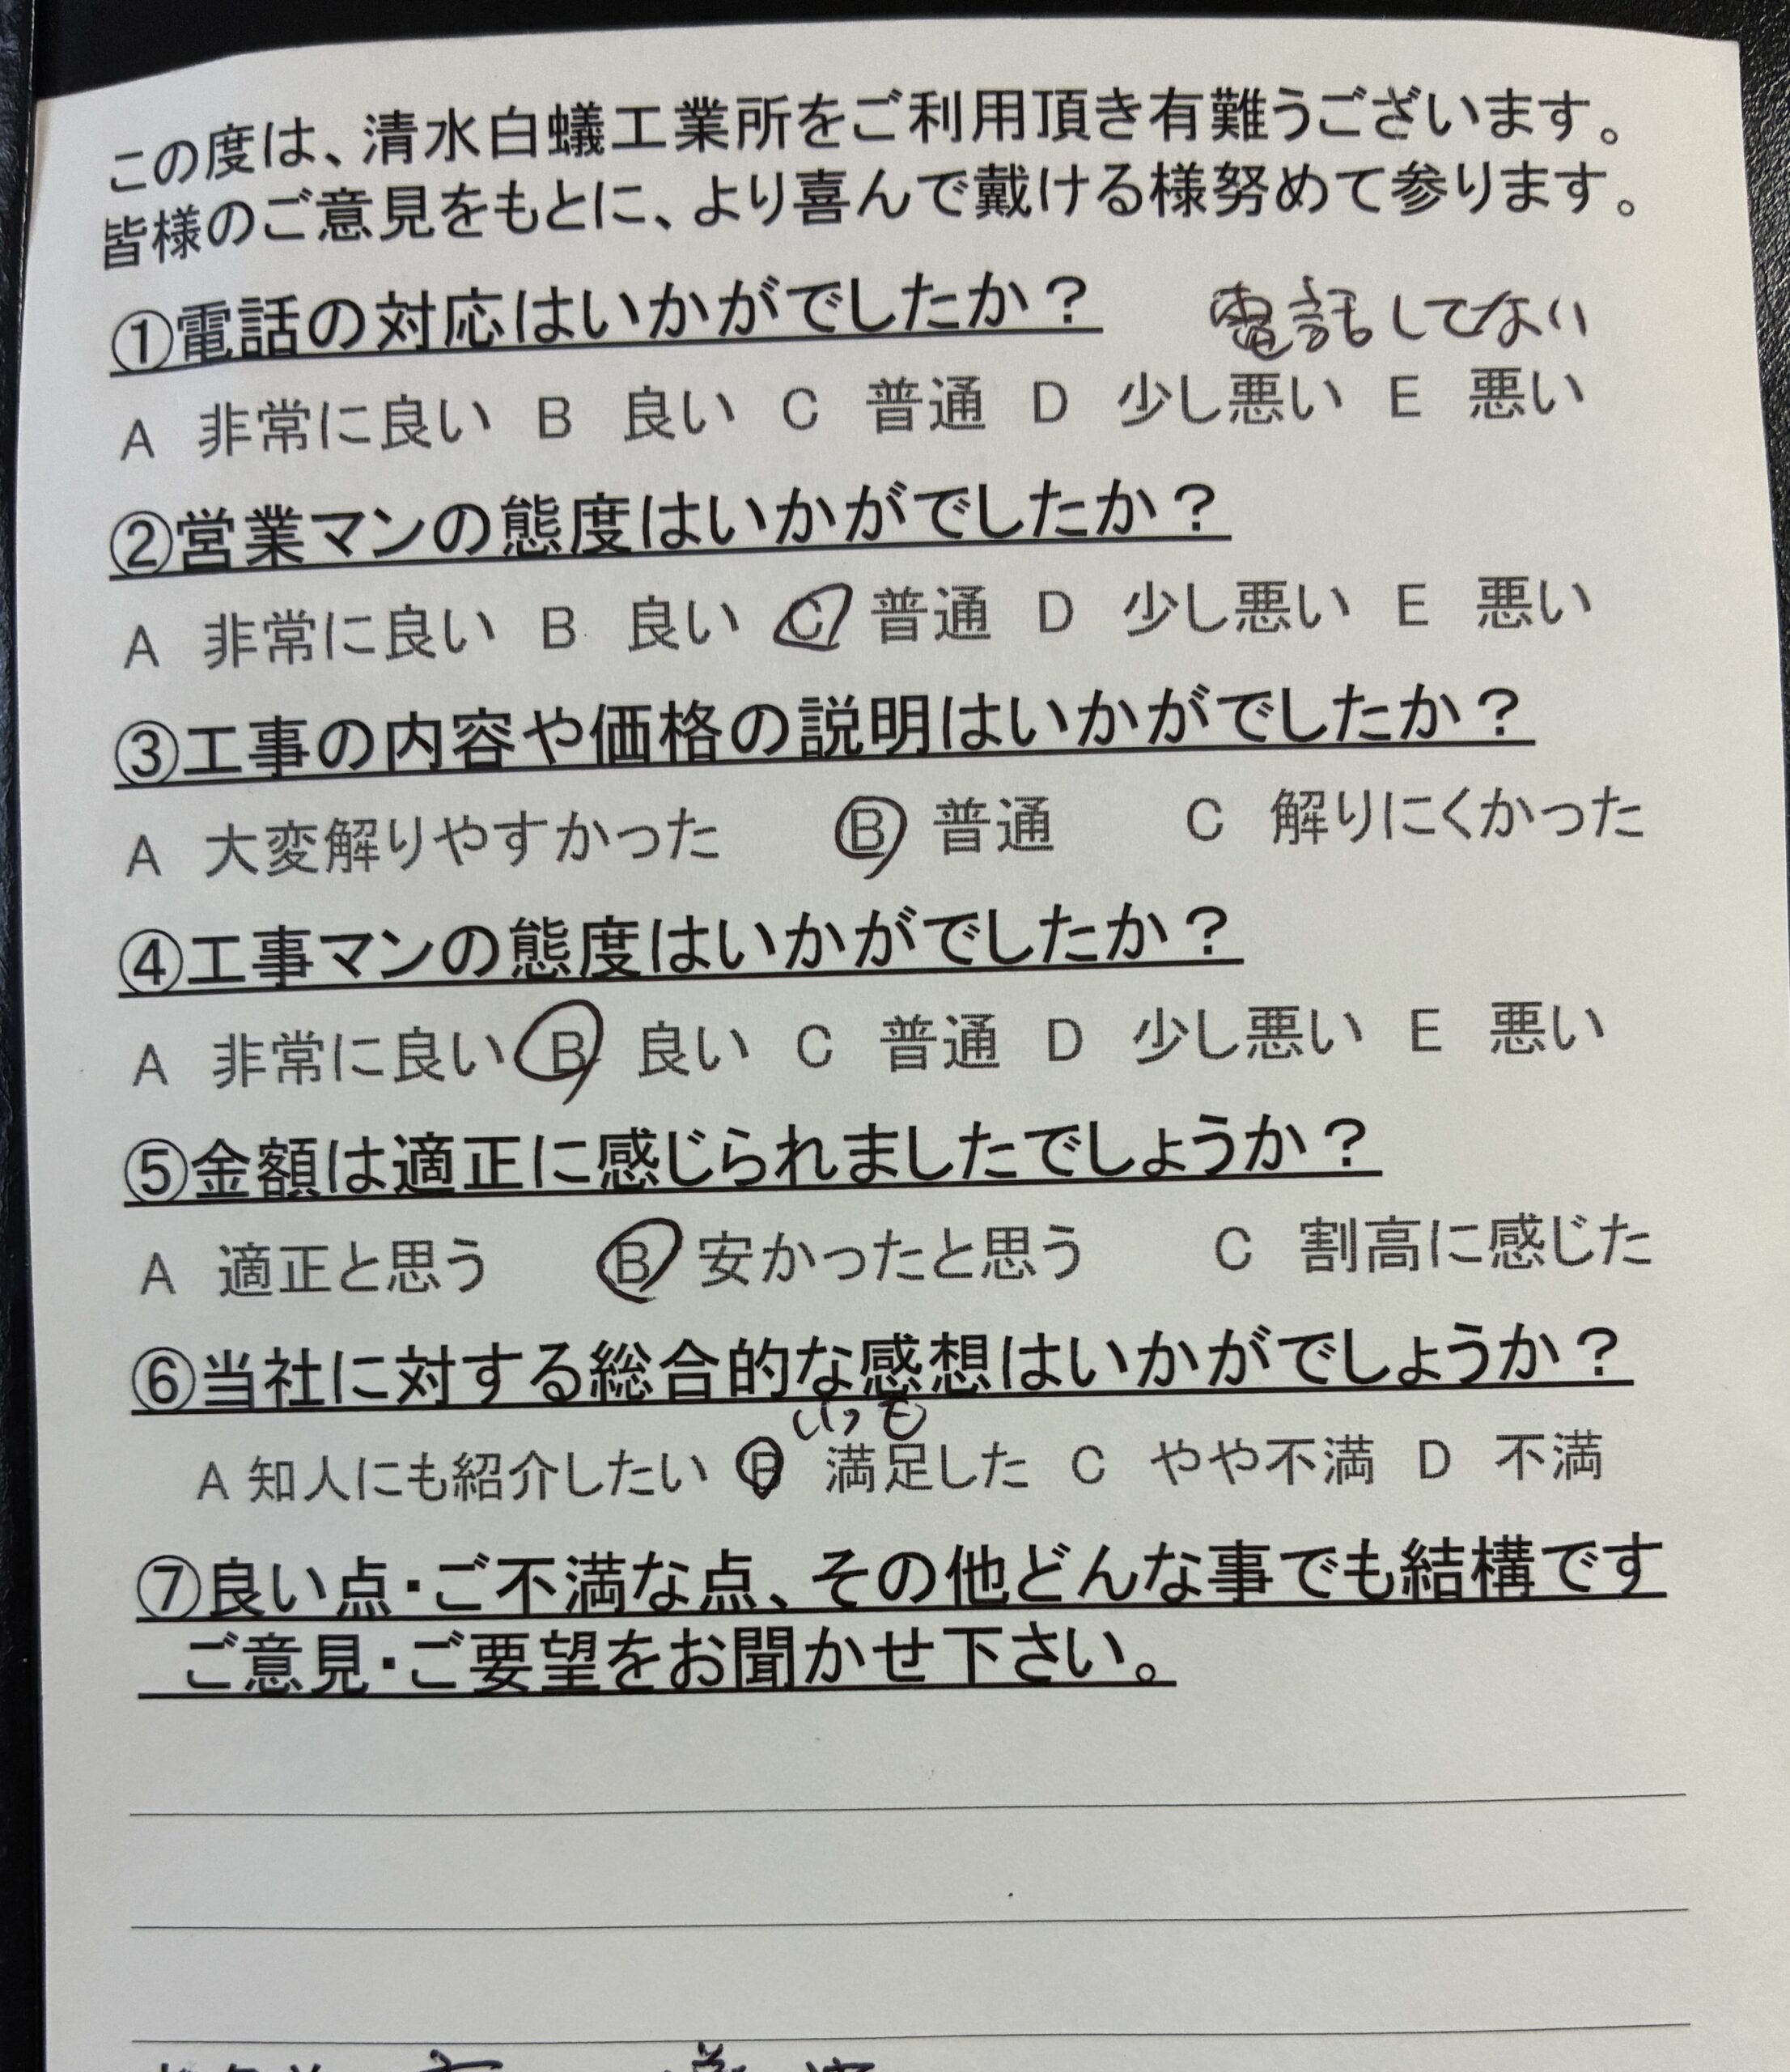 この度は、清水白蟻工業所をご利用頂き有難うございます。
皆様のご意見をもとに、より喜んで戴ける様努めて参ります。
①電話の対応はいかがでしたか？ 電話してない
A 非常に良い B 良い C 普通 D 少し悪い E 悪い
②営業マンの態度はいかがでしたか？
A 非常に良い B 良い C 普通 D 少し悪い E 悪い
③工事の内容や価格の説明はいかがでしたか？
A 大変解りやすかった B 普通 C 解りにくかった
④工事マンの態度はいかがでしたか？
A 非常に良い B 良い C 普通 D 少し悪い E 悪い
⑤金額は適正に感じられましたでしょうか？
A 適正と思う B 安かったと思う C 割高に感じた
⑥当社に対する総合的な感想はいかがでしょうか？
いつも
A 知人にも紹介したい B 満足した C やや不満 D 不満
⑦良い点・ご不満な点、その他どんな事でも結構です
ご意見・ご要望をお聞かせ下さい。